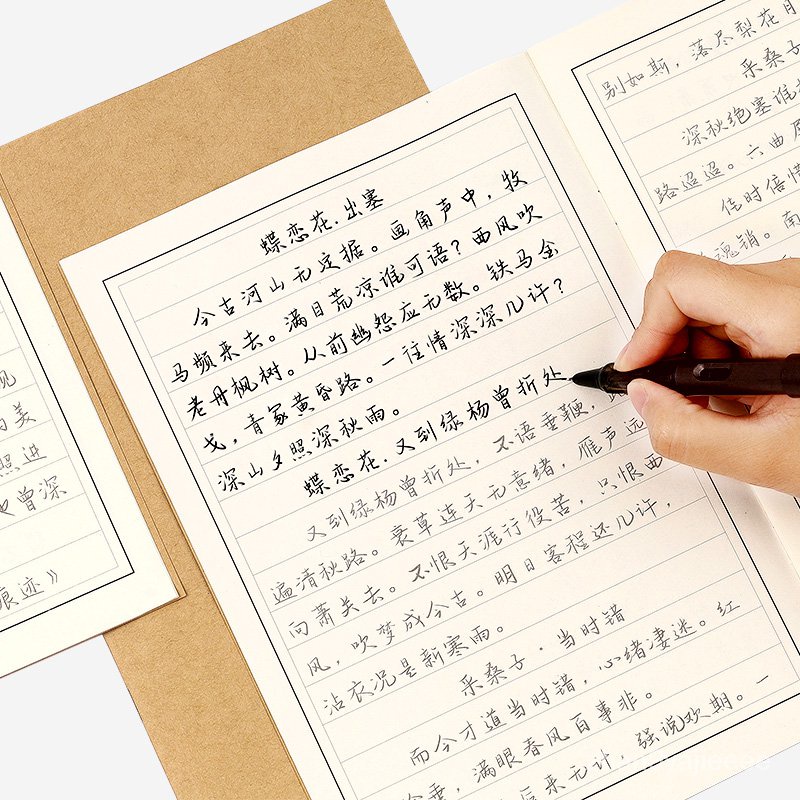 见
的美
照进
也曾深
痕迹》
蝶恋花.出塞
今古河山无定据。画角声中，牧
马频来去。满目荒凉谁可语？西风吹
老丹枫树。从前幽怨应无数。铁马金
戈，青冢黄昏路。一往情深深几许？
深山夕照深秋雨。
蝶恋花.又到绿杨曾折处
又到绿杨曾折处，不语垂鞭，
遍清秋路。衰草连天无意绪，雁声远
向萧关去。不恨天涯行役苦，只恨西
风，吹梦成今古。明日客程还几许，
沾衣况是新寒雨。
采桑子·当时错
而今才道当时错，心绪凄迷。红
垂，满眼春风百事非。
后来无计，强说欢期。一
别如斯，落尽梨花月
采桑子
深秋绝塞谁
路迢迢。六曲
佳时倍惜
魂销。南